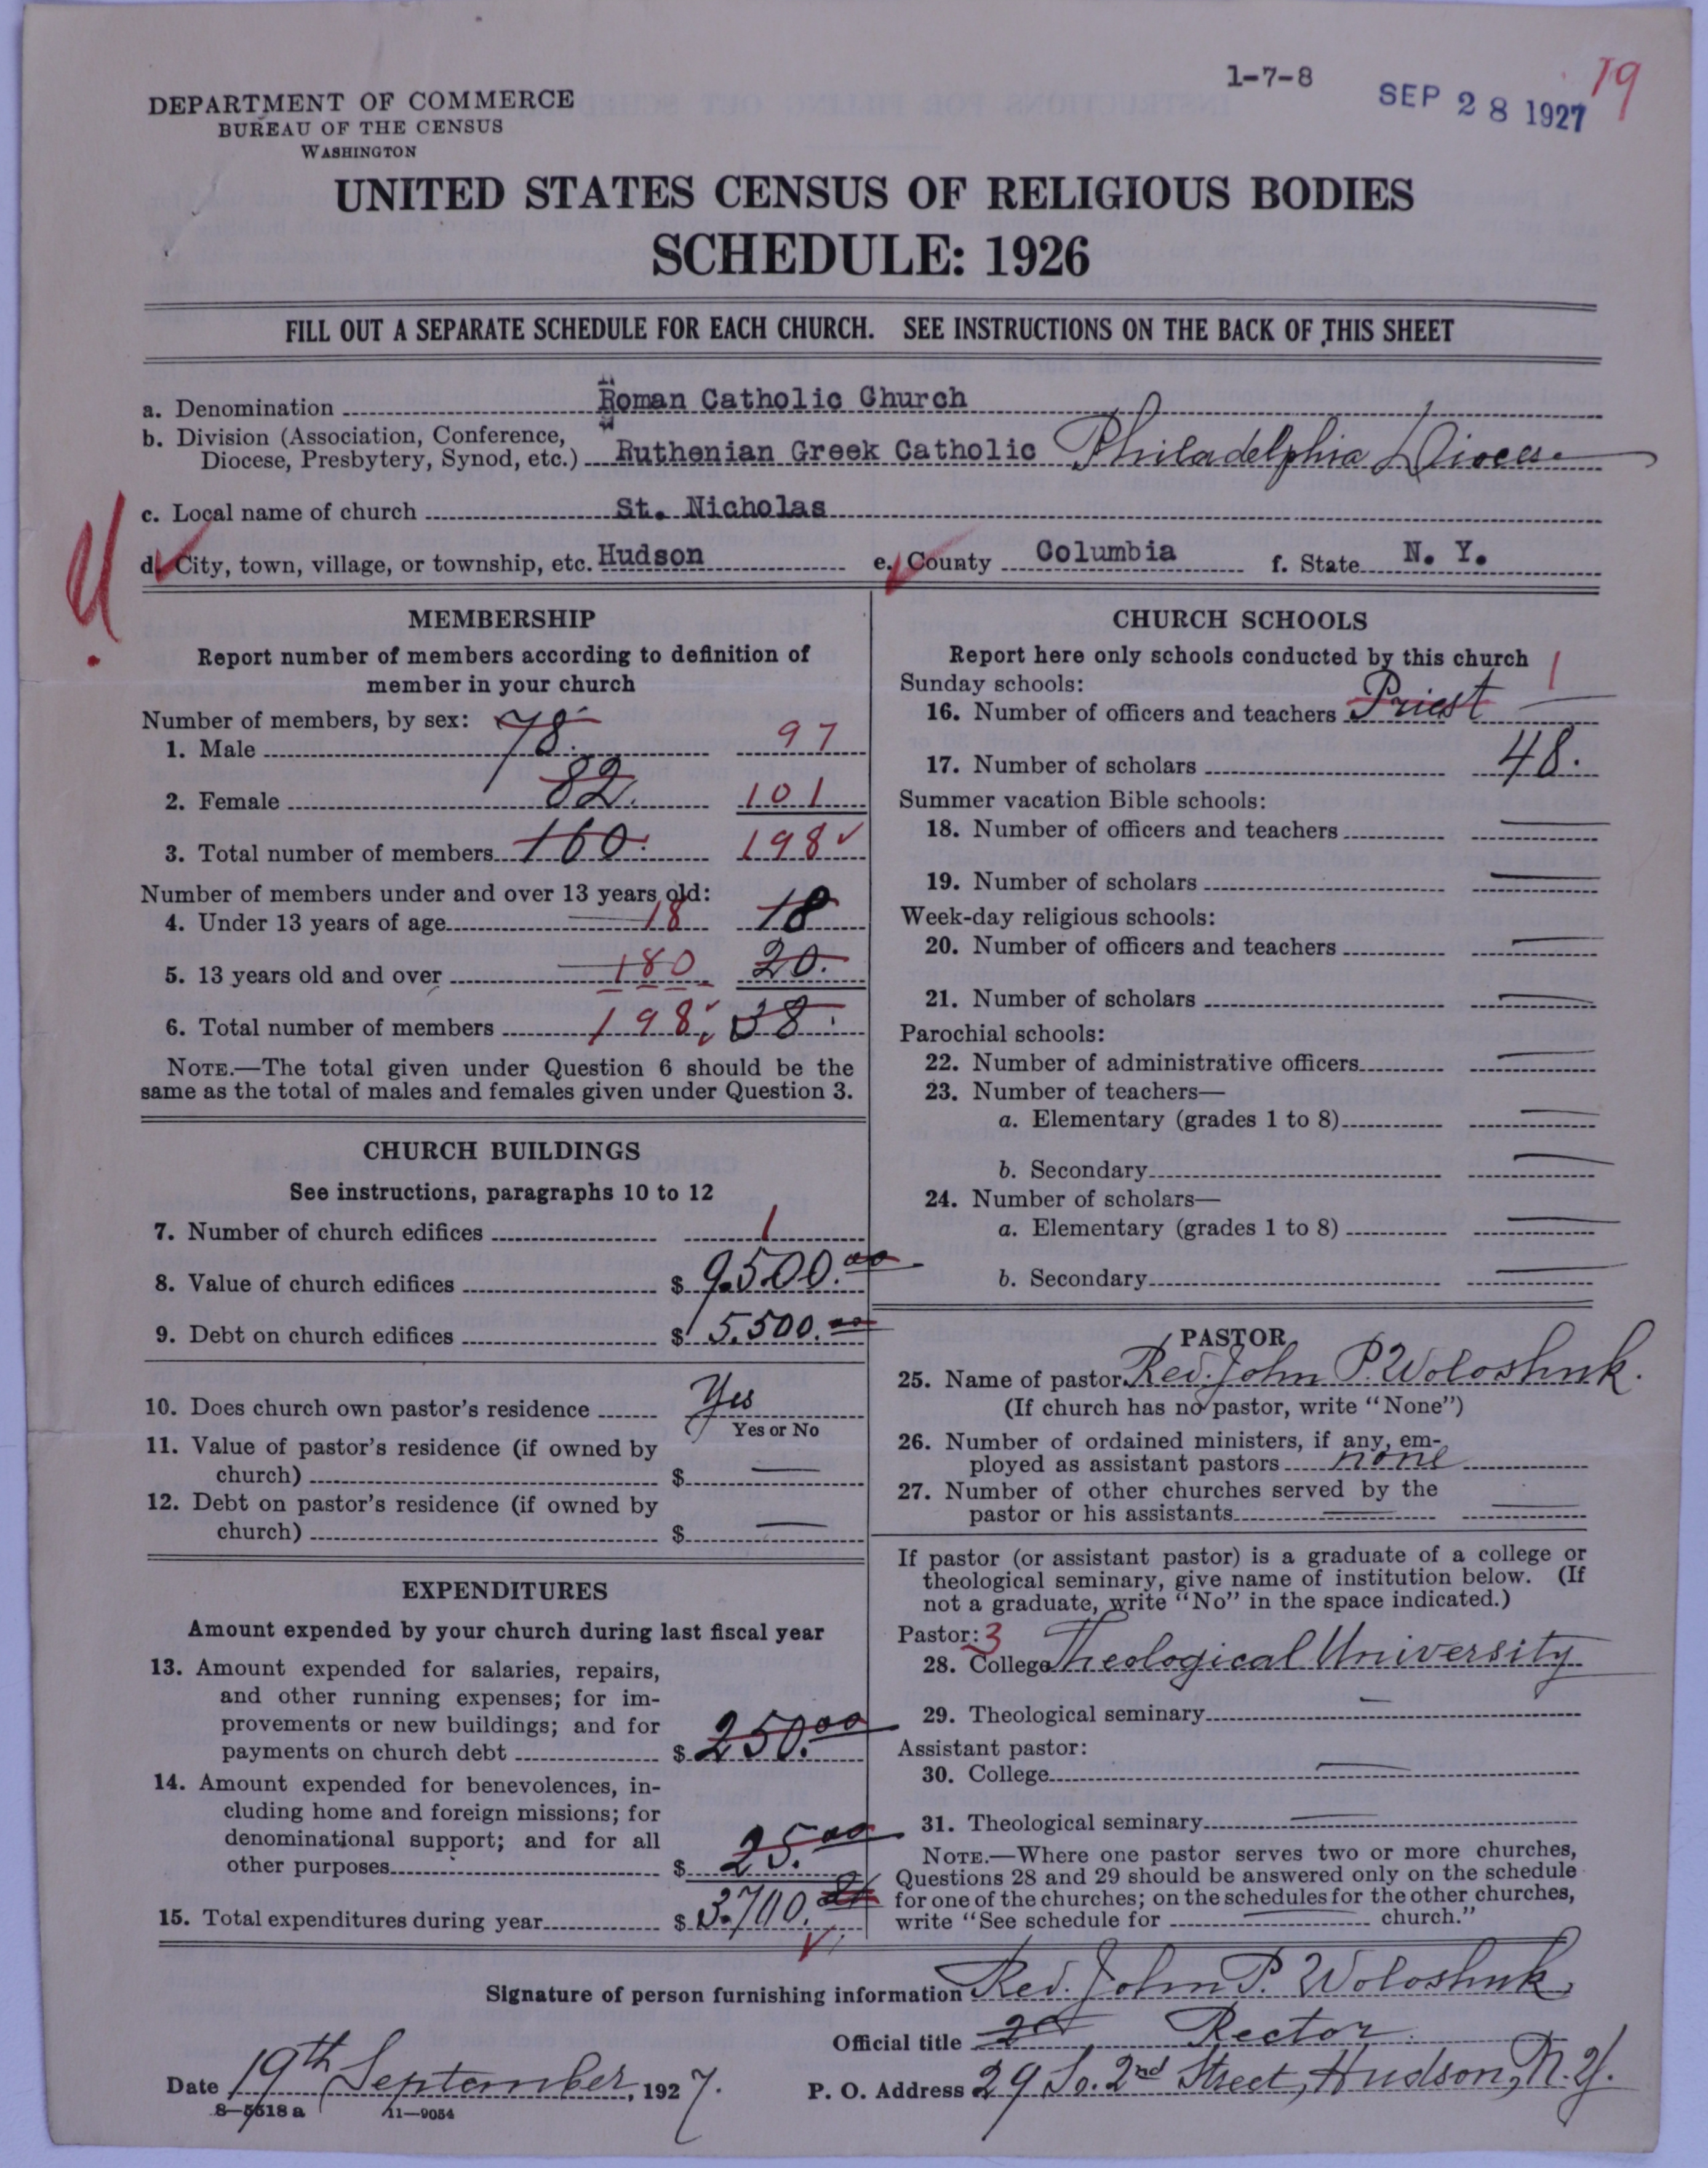 1-7-8
SEP 28 1927
19
DEPARTMENT OF COMMERCE
BUREAU OF THE CENSUS
WASHINGTON
UNITED STATES CENSUS OF RELIGIOUS BODIES
SCHEDULE: 1926
FILL OUT A SEPARATE SCHEDULE FOR EACH CHURCH. SEE INSTRUCTIONS ON THE BACK OF THIS SHEET
a. Denomination Roman Catholic Church
b. Division (Association, Conference,
Diocese, Presbytery, Synod, etc.) Ruthenian Greek Catholic Philadelphia Diocese
c. Local name of church St. Nicholas
d. City, town, village, or township, etc. Hudson e. County Columbia f. State N. Y.
MEMBERSHIP
Report number of members according to definition of
member in your church
Number of members, by sex:
1. Male 78. 97
2. Female 82. 101
3. Total number of members 160. 198
Number of members under and over 13 years old:
4. Under 13 years of age 18 18
5. 13 years old and over 180 20.
6. Total number of members 198 38.
NOTE.—The total given under Question 6 should be the
same as the total of males and females given under Question 3.
CHURCH BUILDINGS
See instructions, paragraphs 10 to 12
7. Number of church edifices 1
8. Value of church edifices $ 9.500.00
9. Debt on church edifices $ 5.500.00
10. Does church own pastor's residence Yes
Yes or No
11. Value of pastor's residence (if owned by
church) $ —
12. Debt on pastor's residence (if owned by
church) $ —
EXPENDITURES
Amount expended by your church during last fiscal year
13. Amount expended for salaries, repairs,
and other running expenses; for im-
provements or new buildings; and for
payments on church debt $ 250.00
14. Amount expended for benevolences, in-
cluding home and foreign missions; for
denominational support; and for all
other purposes $ 25.00
15. Total expenditures during year $
CHURCH SCHOOLS
Report here only schools conducted by this church
Sunday schools:
16. Number of officers and teachers Priest 1
17. Number of scholars 48.
Summer vacation Bible schools:
18. Number of officers and teachers —
19. Number of scholars —
Week-day religious schools:
20. Number of officers and teachers —
21. Number of scholars —
Parochial schools:
22. Number of administrative officers —
23. Number of teachers—
a. Elementary (grades 1 to 8) —
b. Secondary —
24. Number of scholars—
a. Elementary (grades 1 to 8) —
b. Secondary —
PASTOR
25. Name of pastor Rev. John P. Woloshuk.
(If church has no pastor, write "None")
26. Number of ordained ministers, if any, em-
ployed as assistant pastors none
27. Number of other churches served by the
pastor or his assistants —
If pastor (or assistant pastor) is a graduate of a college or
theological seminary, give name of institution below. (If
not a graduate, write "No" in the space indicated.)
Pastor: 3
28. College Theological University
29. Theological seminary —
Assistant pastor:
30. College —
31. Theological seminary —
NOTE.—Where one pastor serves two or more churches,
Questions 28 and 29 should be answered only on the schedule
for one of the churches; on the schedules for the other churches,
write "See schedule for — church."
Signature of person furnishing information Rev. John P. Woloshuk,
Official title Rector
Date 19th September, 1927. P. O. Address 29 So. 2nd Street, Hudson, N.Y.
8-5518 a 11-9054